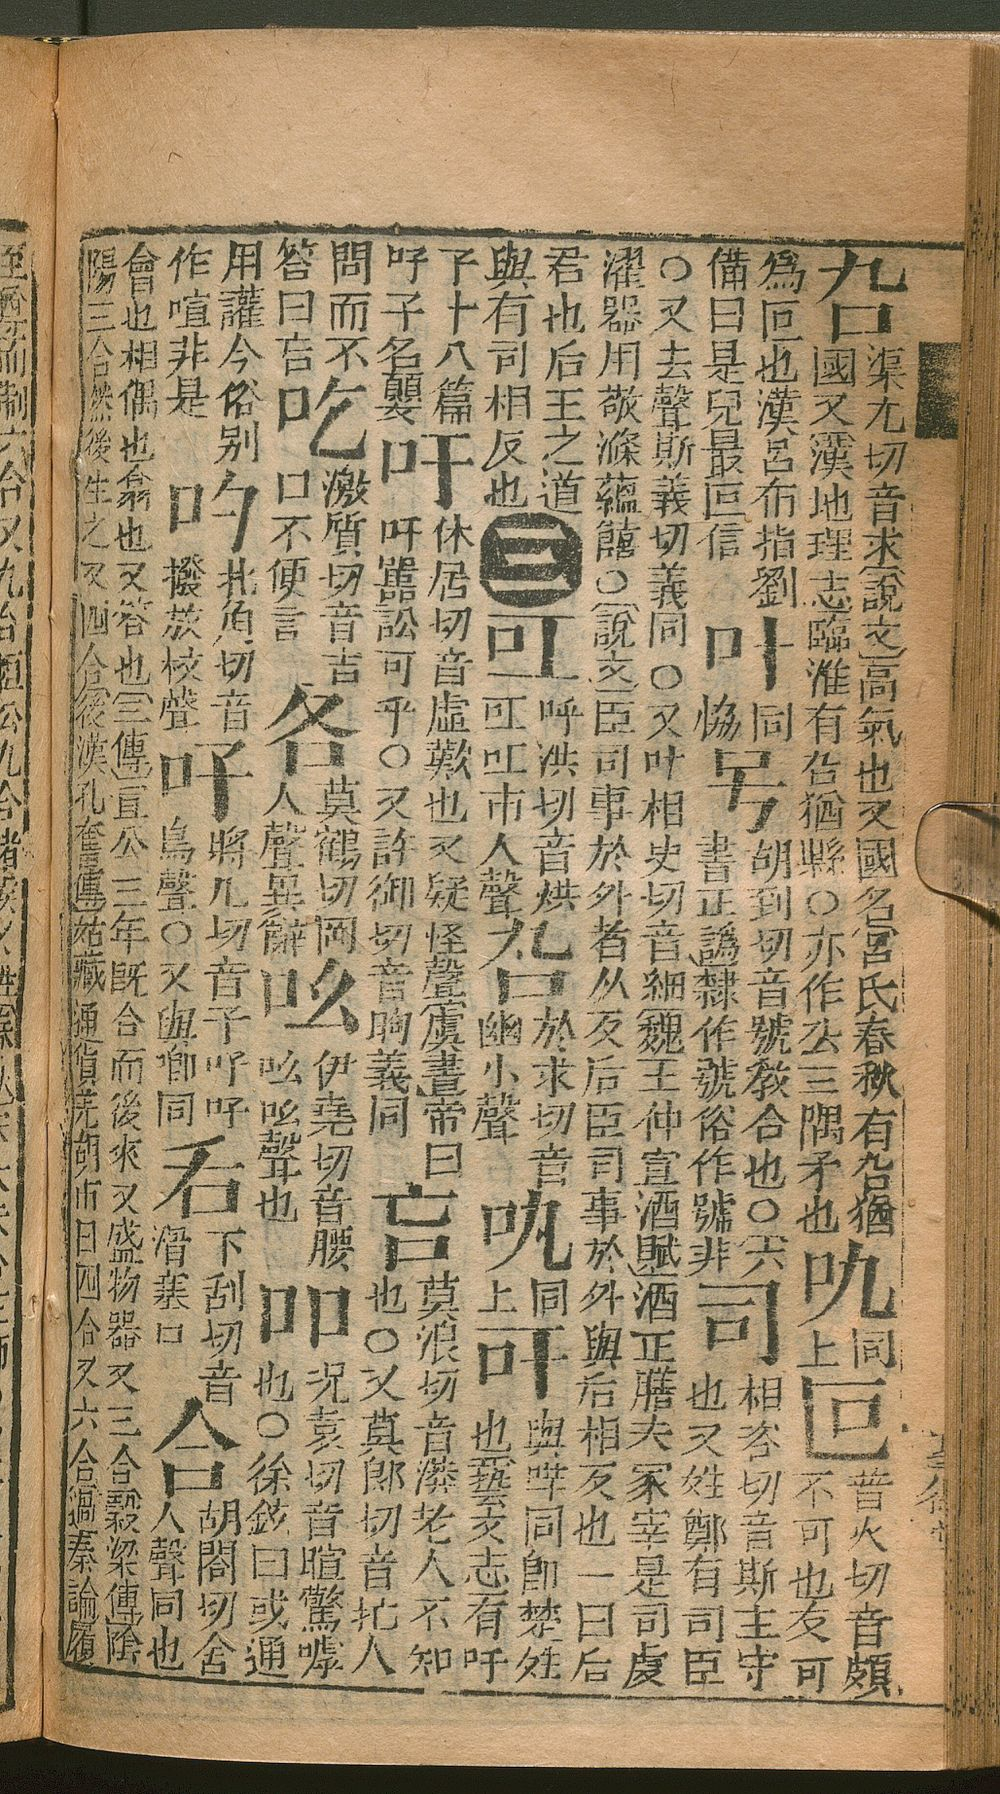 叴渠尤切音求說文高氣也又國名呂氏春秋有叴猶
國又漢地理志臨淮有叴猶縣○亦作厹三隅矛也
同
上
叵普火切音頗
不可也反可
為叵也漢呂布指劉
備曰是兒最叵信
叶同
協
号胡到切音號教合也○六
書正譌隸作號俗作號非
司相咨切音斯主守
也又姓鄭有司臣
○又去聲斯義切義同○又叶相史切音細魏王仲宣酒賦酒正膳夫冢宰是司虔
濯器用敬滌蘊饎○說文臣司事於外者从反后臣司事於外與后相反也一曰后
君也后王之道
與有司相反也
三
叿呼洪切音烘
叿叿市人聲
於求切音
幽小聲
同
上
吁與咩同即楚姓
也藝文志有吁
子十八篇
吁子名嬰
吁休居切音虛歎也又疑怪聲虞書帝曰
吁嚚訟可乎○又許御切音昫義同
吂莫浪切音漭老人不知
也○又莫郎切音忙人
問而不
答曰吂
吃激質切音吉
口不便言
各莫鶴切岡
人聲異辭
吆伊堯切音腰
吆吆聲也
吅況袁切音暄驚嘑
也○徐鉉曰或通
用讙今俗别
作喧非是
角切音
聲
吇將几切音子吇吇
鳥聲○又與唧同
下刮切音
塞口
合胡閤切合
人聲同也
會也相偶也翕也又答也三傳宣公三年既合而後來又盛物器又三合穀梁傳陰
陽三合然後生之又四合後漢孔奮傳姑臧通貨羌胡市日四合又六合過秦論履